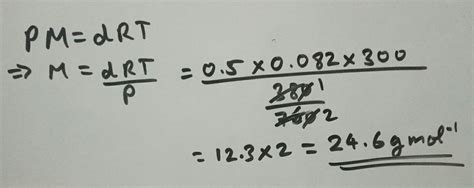 PM = dRT
⇒ M = dRT/P = 0.5 × 0.082 × 300 / (380 1 / 760 2)
= 12.3 × 2 = 24.6 g mol⁻¹